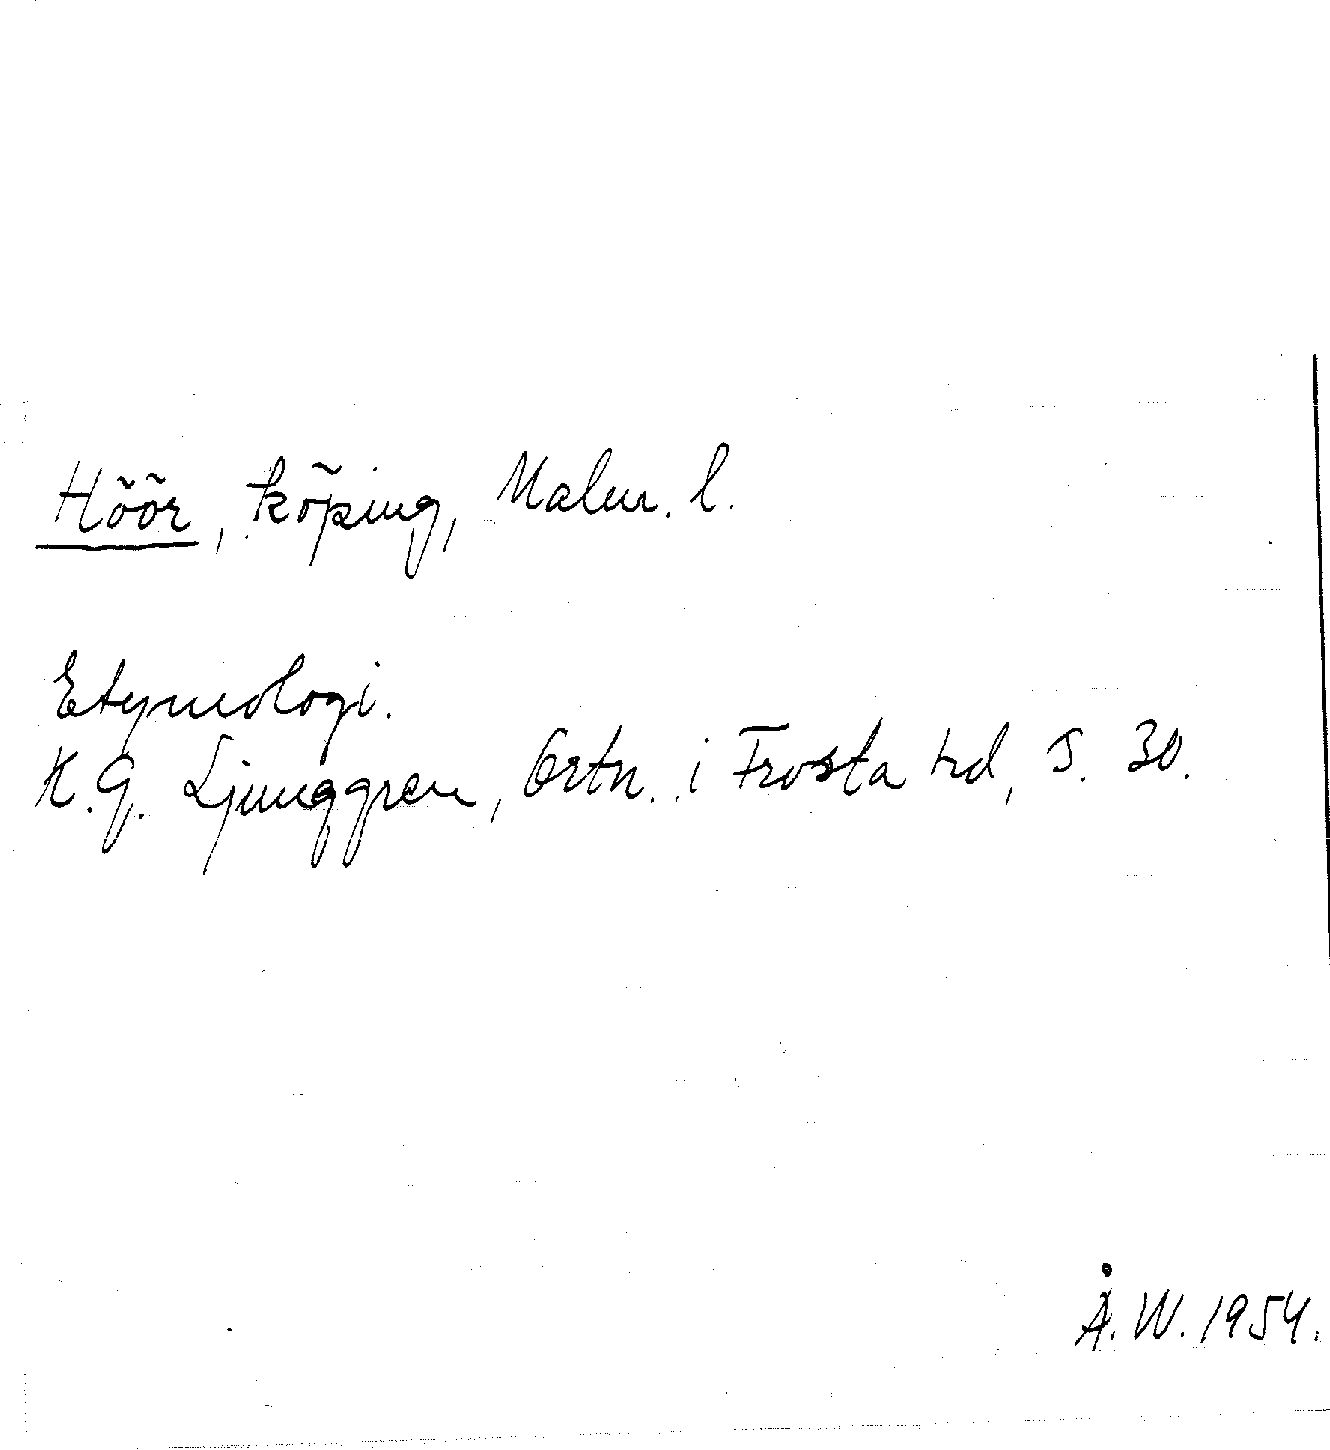 Höör, köping, Malm. l.
Etymologi.
K.G. Ljunggren, Ortn. i Frosta hd, S. 30.
Å.W. 1954.